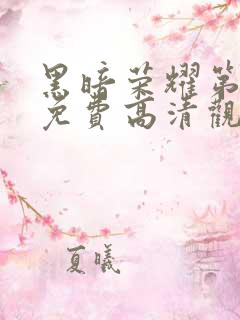 黑暗荣耀第
免費高清觀
夏曦